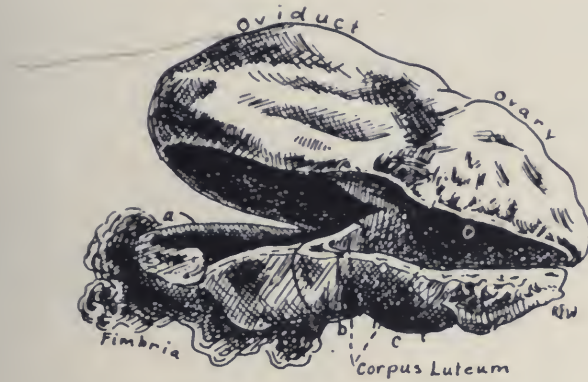 Oviduct
Ovary
a
Fimbria
b
c
Corpus Luteum
REW